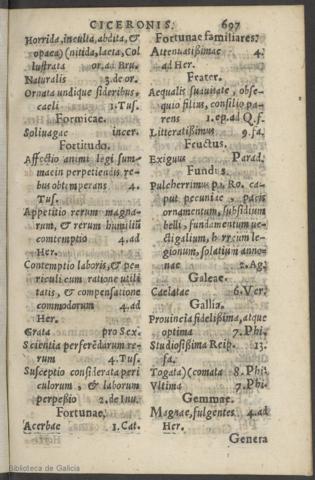 CICERONIS. 697
Horrida, inculta, abdita, &
opaca) (nitida, laeta, Col
lustrata or. ad Bru.
Naturalis 3. de or.
Ornata undique sideribus,
caeli 1. Tus.
Formicae.
Solivagae incer.
Fortitudo.
Affectio animi legi sum-
mae in perpetiendis re-
bus obtemperans 4.
Tus.
Appetitio rerum magna-
rum, & rerum humiliũ
comtemptio 4. ad
Her.
Contemptio laboris, & pe-
riculi cum ratione utili
tatis, & compensatione
commodorum 4. ad
Her.
Grata pro Sex.
Scientia perferẽdarum re-
rum 4. Tus.
Susceptio considerata peri
culorum, & laborum
perpeßio 2. de Inv.
Fortunae.
Acerbae 1. Cat.
Fortunae familiares.
Attenuatißimae 4.
ad Her.
Frater.
Aequalis suavitate, obse-
quio filius, consilio pa-
rens 1. ep. ad Q. f.
Litteratißimus 9. fa.
Fructus.
Exiguus Parad.
Fundus.
Pulcherrimus p. Ro. ca-
put pecuniae, pacis
ornamentum, subsidium
belli, fundamentum ve-
ctigalium, horreum le-
gionum, solatium anno-
nae 2. Ag.
Galeae.
Caelatae 6. Ver.
Gallia.
Provincia fidelißima, atque
optima 7. Phi.
Studiosißima Reip. 13.
fa.
Togata) (comata 8. Phi.
Ultima 7. Phi.
Gemmae.
Magnae, fulgentes 4. ad
Her.
Genera
Biblioteca de Galicia